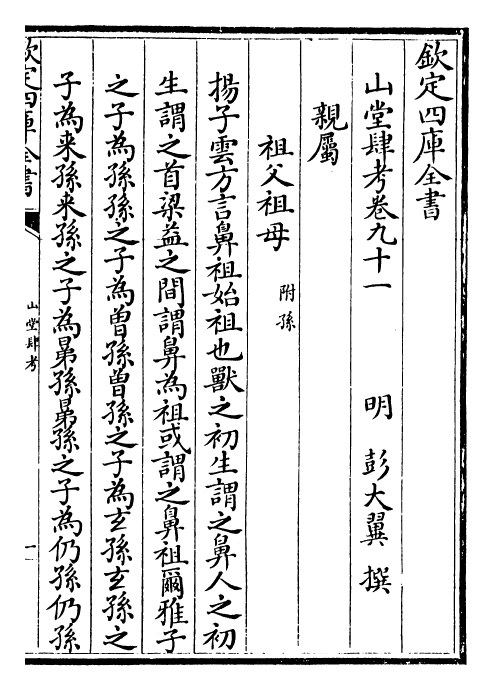 欽定四庫全書
山堂肆考卷九十一　明　彭大翼　撰
親屬
祖父祖母　附孫
揚子雲方言鼻祖始祖也獸之初生謂之鼻人之初
生謂之首梁益之間謂鼻為祖或謂之鼻祖爾雅子
之子為孫孫之子為曾孫曾孫之子為玄孫玄孫之
子為来孫来孫之子為晜孫晜孫之子為仍孫仍孫
欽定四庫全書
山堂肆考
一